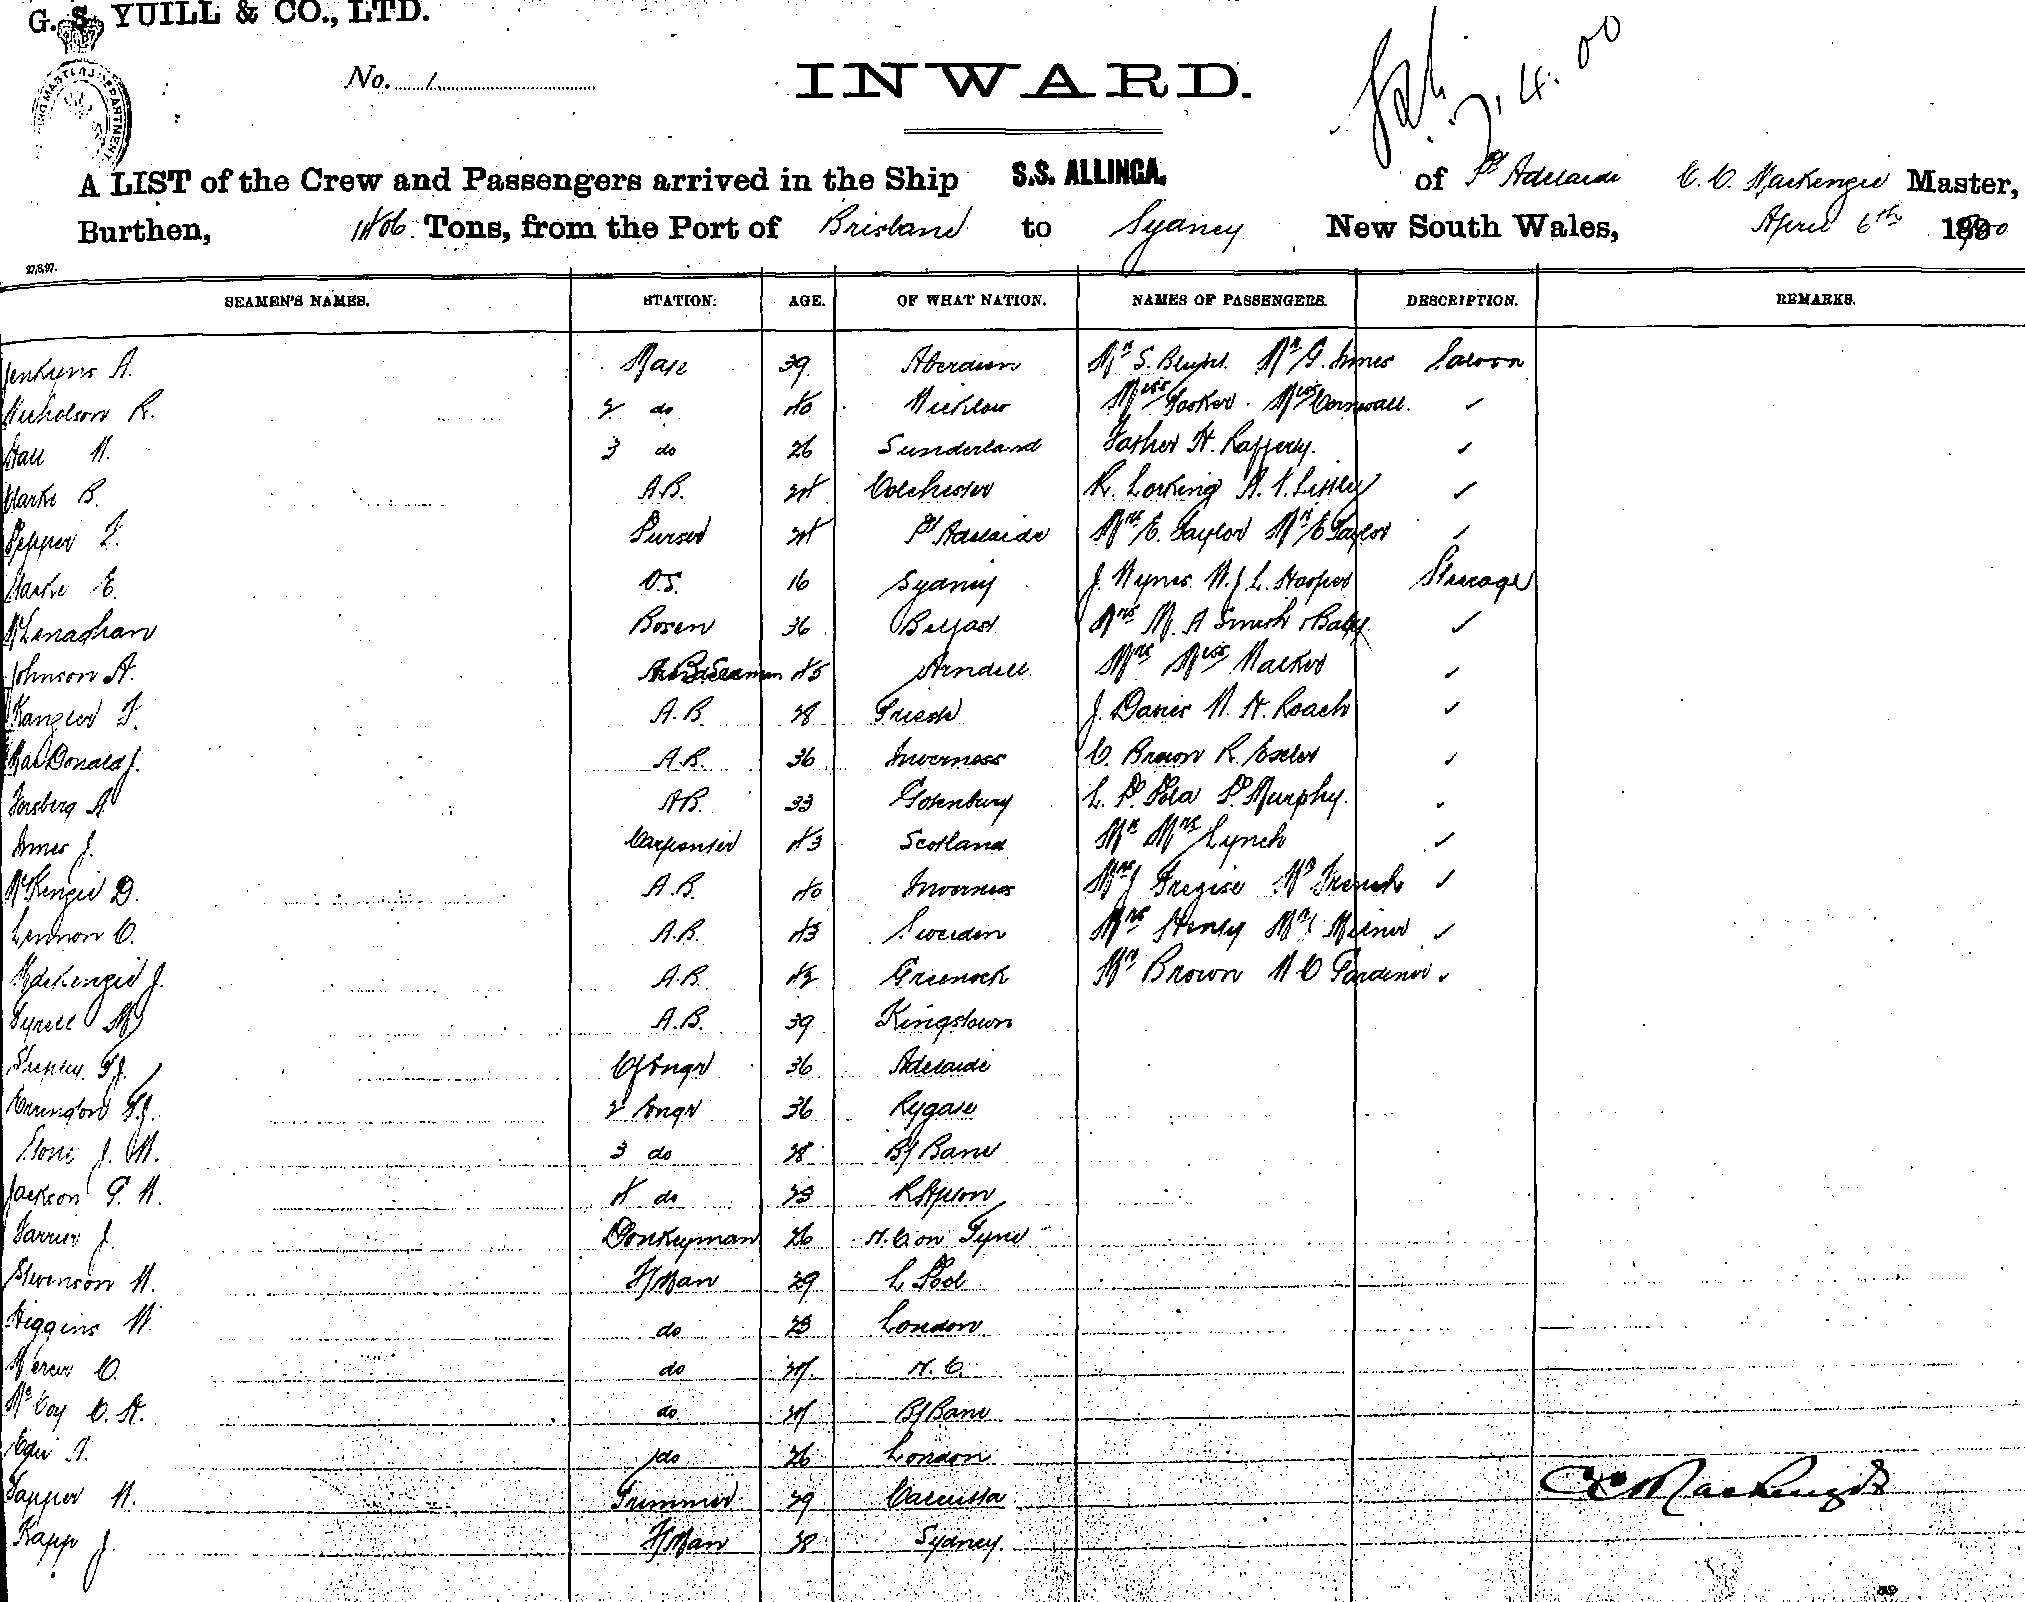 G. S. YUILL & CO., LTD.
No. 1
INWARD.
7. 4. 00
A LIST of the Crew and Passengers arrived in the Ship S.S. ALLINGA, of Pt Adelaide C. C. Mackenzie Master,
Burthen, Tons, from the Port of Brisbane to Sydney New South Wales, April 6th 1900
27,8,97.
SEAMEN'S NAMES. STATION. AGE. OF WHAT NATION. NAMES OF PASSENGERS. DESCRIPTION. REMARKS.
Jenkyns A. Mate 39 Aberdeen Mr S. Blight Mr G. Innes Saloon
Nicholson R. 2 do 40 Wicklow Miss Tooker Miss Cornwall ✓
Hall W. 3 do 26 Sunderland Father H. Raffery. ✓
Clarke B. A.B. 24 Colchester R. Locking A. V. ✓
Pepper F. Purser 24 Pt Adelaide Mrs E. Taylor Mr E Taylor ✓
E. O.S. 16 Sydney J. Wynes W. J. L. Harper Steerage
McLenaghan Bosen 36 Belfast Mrs M. A Smith & Baby. ✓
Johnson A. 45 Arndell Mrs Miss Walker ✓
F. A.B. 28 J. Davies W. H. Roach ✓
MacDonald J. A.B. 36 Inverness C. Brown R. ✓
Forsberg A A.B. 33 Gotenburg L. P. Pola P. Murphy. ✓
Innes J. Carpenter 43 Scotland Mr Mrs Lynch ✓
McKenzie D. A.B. 40 Inverness Mrs J Tregise Mr French ✓
Lennon C. A.B. 43 Sweeden Mrs Henly Mr J Milner ✓
MacKenzie J. A.B. 42 Greenock Mr Brown W C Gardener ✓
Tyrell M A.B. 39 Kingstown
Shepley F J. Cf Engr 36 Adelaide
Errington F J. 2 Engr 36 Rygate
Stone J. W. 3 do 28 B/Bane
Jackson G. W. 4 do 23 R/Hpton
Farrier J. Donkeyman 26 N.C on Tyne
Stevenson W. F/Man 29 L Pool
Higgins W. do 23 London
Mercer C. do 24 N.C.
McCoy C. H. do 24 B/Bane
Edie A. do 26 London
Tapper W. Trimmer 29 Calcutta
Rapp J. F/Man 28 Sydney.
C C Mackenzie